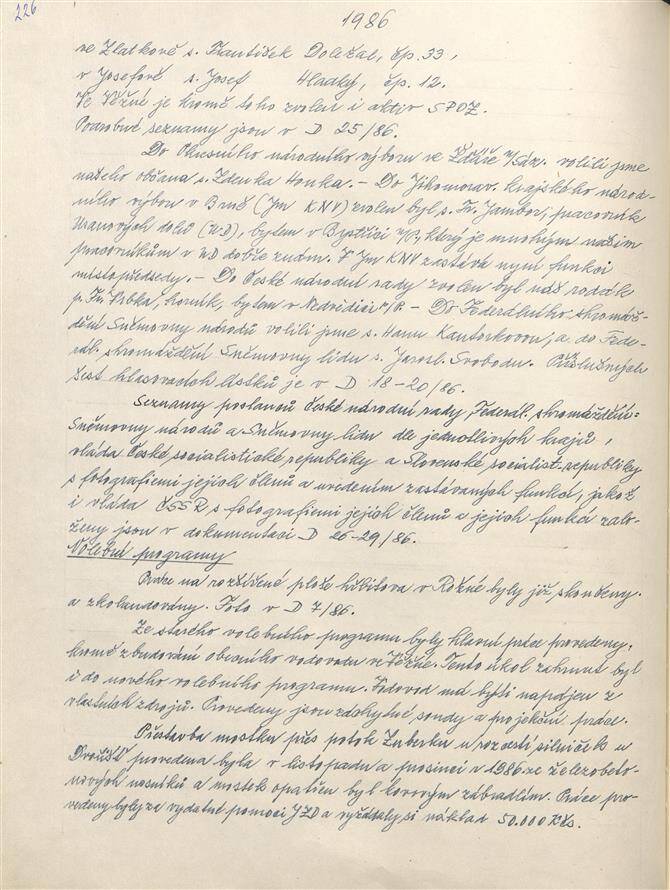 226
1986
ve Zlatkově s. František Doležal, čp. 33,
v Josefově s. Josef Hladký, čp. 12.
Ve Věžné je kromě toho zvolen i aktiv SPOZ.
Podrobné seznamy jsou v D 25/86.
Do Okresního národního výboru ve Žďáře n/Sáz. volili jsme
našeho občana s. Zdeňka Honka. - Do Jihomorav. krajského národ-
ního výboru v Brně (Jm KNV) zvolen byl s. Fr. Jambor, pracovník
Uranových dolů (UD), bytem v Bystřici n/P., který je mnohým našim
pracovníkům v UD dobře znám. V Jm KNV zastává nyní funkci
místopředsedy. - Do České národní rady zvolen byl náš rodák
p. Fr. Vrbka, horník, bytem v Nedvědici n/P. - Do Federálního shromáž-
dění Sněmovny národů volili jsme s. Hanu Kantorkovou, a do Fede-
rál. shromáždění Sněmovny lidu s. Jarosl. Svobodu. Příslušných
šest hlasovacích lístků je v D 18-20/86.
Seznamy poslanců České národní rady, Federál. shromáždění:
Sněmovny národů a Sněmovny lidu dle jednotlivých krajů,
vláda České socialistické republiky a Slovenské socialist. republiky
s fotografiemi jejich členů a uvedením zastávaných funkcí, jakož
i vláda ČSSR s fotografiemi jejich členů a jejich funkcí zalo-
ženy jsou v dokumentaci D 26-29/86.
Volební programy
Práce na rozšířené ploše hřbitova v Rožné byly již skončeny.
a zkolaudovány. Foto v D 7/86.
Ze starého volebního programu byly hlavní práce provedeny,
kromě zbudování obecního vodovodu ve Věžné. Tento úkol zahrnut byl
i do nového volebního programu. Vodovod má býti napájen z
vlastních zdrojů. Provedeny jsou zdatné sondy a projekční práce.
Přestavba mostku přes potok Zuberku u rozcestí silniček u
Dvořišť provedena byla v listopadu a prosinci v 1986 ze železobeto-
nových nosníků a mostek opatřen byl kovovým zábradlím. Práce pro-
vedeny byly za vydatné pomoci JZD a vyžádaly si náklad 50.000 Kčs.